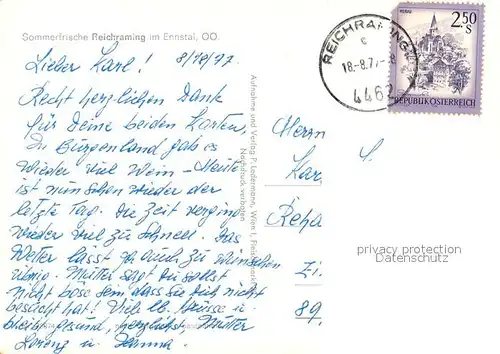 Sommerfrische Reichraming im Ennstal, OÖ.
Lieber Karl! 8/18/77
Recht herzlichen Dank
für Deine beiden Karten,
Im Burgenland gab es
wieder viel Wein – Heute
ist nun schon wieder der
letzte Tag. Die Zeit verging
wieder viel zu schnell. Das
Wetter lässt ja auch zu wünschen
übrig. Mutter sagt Du sollst
nicht böse sein dass sie Dich nicht
besucht hat! Viele lb. Grüsse u.
bleib gesund, herzlichst Mutter
Lorenz u. Hanna.
Aufnahme und Verlag P. Ledermann, Wien I,
Nachdruck verboten
REICHRAMING
c
18.-8.77-8
4462
2.50
S
REPUBLIK ÖSTERREICH
Herrn
Kar
Reha
Zi.
89,
privacy protection
Datenschutz